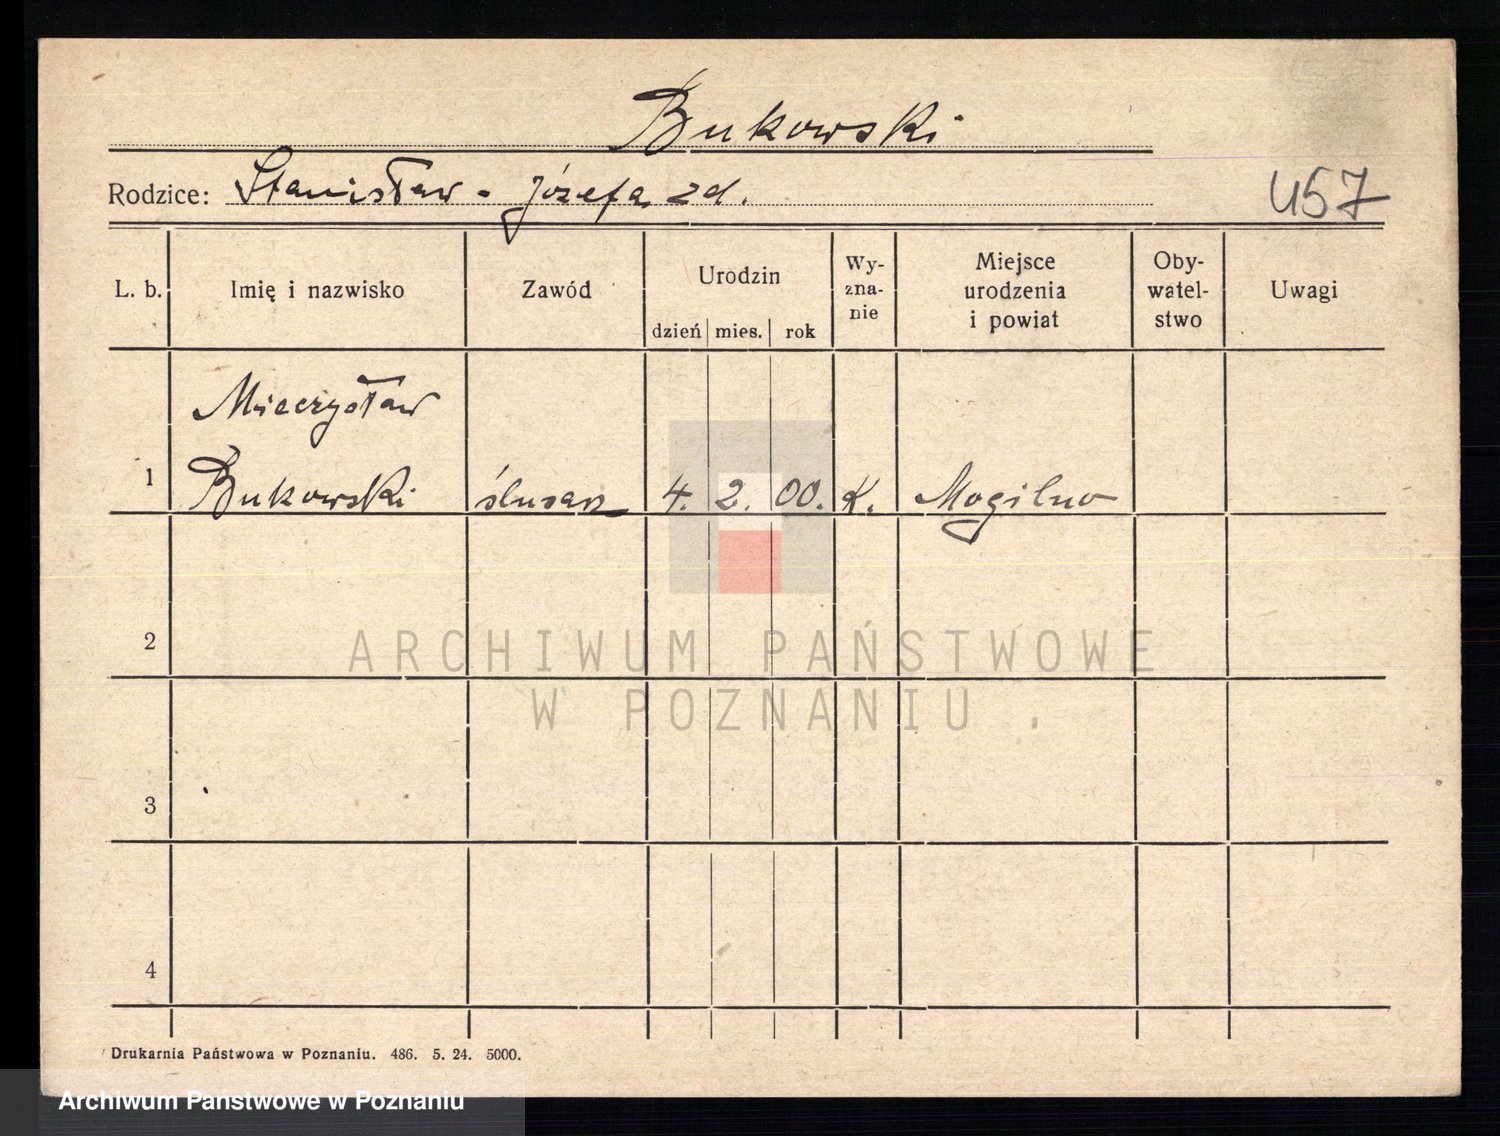 Bukowski
Rodzice: Stanisław - Józefa zd.
457
L. b.
Imię i nazwisko
Zawód
Urodzin
dzień mies. rok
Wy-
zna-
nie
Miejsce
urodzenia
i powiat
Oby-
watel-
stwo
Uwagi
Mieczysław
1 Bukowski ślusarz 4. 2. 00. K. Mogilno
2
ARCHIWUM PAŃSTWOWE
W POZNANIU
3
4
Drukarnia Państwowa w Poznaniu. 486. 5. 24. 5000.
Archiwum Państwowe w Poznaniu